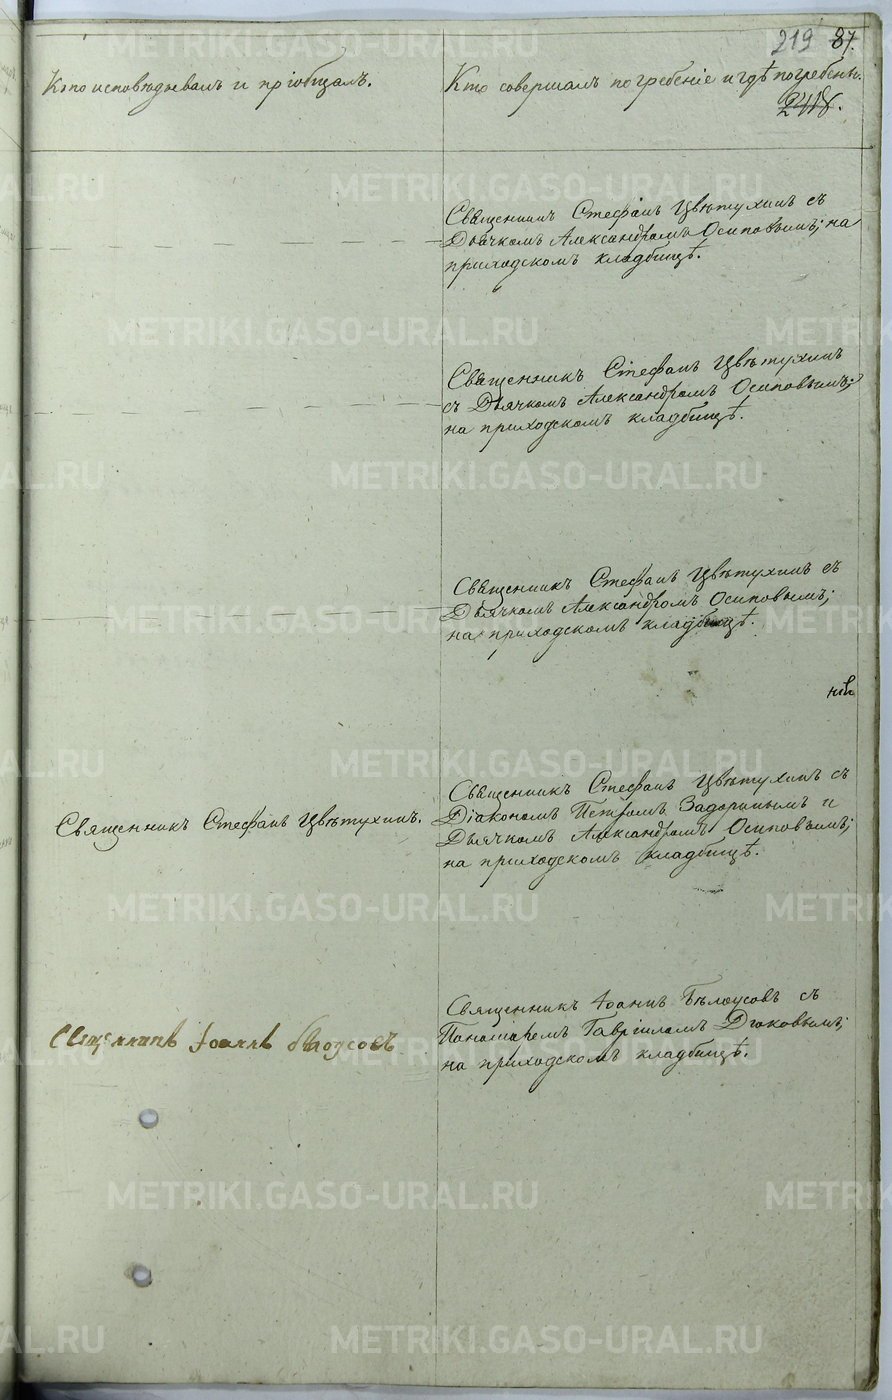 219 87.
Кто исповѣдывалъ и пріобщалъ.
Кто совершалъ погребеніе и гдѣ погребены.
Священникъ Стефанъ Цвѣтухинъ съ
Дьячкомъ Александромъ Осиповымъ; на
приходскомъ кладбищѣ.
Священникъ Стефанъ Цвѣтухинъ
съ Дьячкомъ Александромъ Осиповымъ;
на приходскомъ кладбищѣ.
Священникъ Стефанъ Цвѣтухинъ съ
Дьячкомъ Александромъ Осиповымъ;
на приходскомъ кладбищѣ.
Священникъ Стефанъ Цвѣтухинъ.
Священникъ Стефанъ Цвѣтухинъ съ
Діакономъ Петромъ Задоринымъ и
Дьячкомъ Александромъ Осиповымъ;
на приходскомъ кладбищѣ.
Священникъ Іоаннъ Бѣлоусовъ
Священникъ Іоаннъ Бѣлоусовъ съ
Пономаремъ Гавріиломъ Дюковымъ;
на приходскомъ кладбищѣ.
METRIKI.GASO-URAL.RU